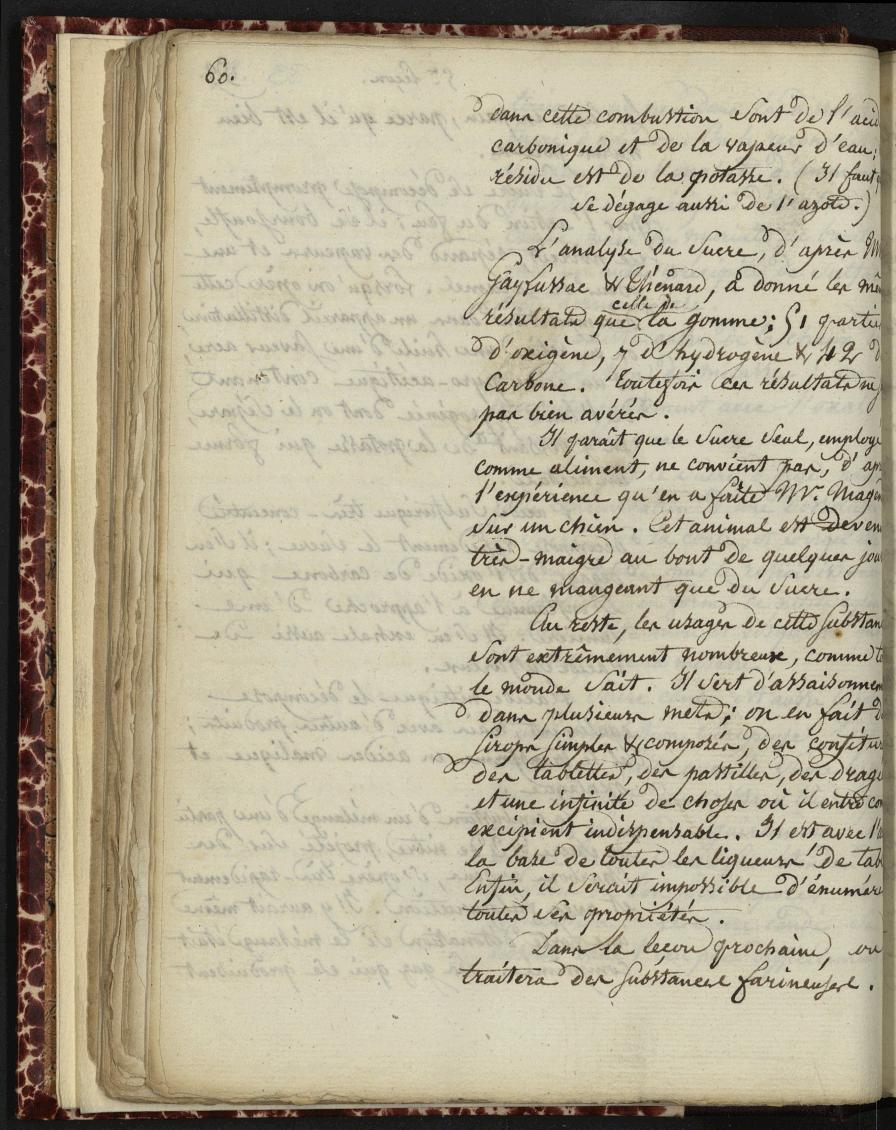 60.
dans cette combustion sont de l'acid
carbonique et de la vapeur d'eau;
résidu est de la potasse. (Il faut
se dégage aussi de l'azote.)
L'analyse du sucre, d'après
Gaylussac & Thénard, a donné les mê
celle de
résultats que la gomme; 51 partie
d'oxigène, 7 d'hydrogène & 42 d
Carbone. Toutefois ces résultats ne
pas bien avérés.
Il paraît que le sucre seul, employé
comme aliment, ne convient pas, d'apr
l'expérience qu'en a faite Mr. Magen
sur un chien. Cet animal est deven
très-maigre au bout de quelques jou
en ne mangeant que du sucre.
Au reste, les usages de cette substan
sont extrêmement nombreux, comme to
le monde sait. Il sert d'assaisonnem
dans plusieurs mets; on en fait d
sirops simples & composés, des confitur
des tablettes, des pastilles, des dragé
et une infinité de choses où il entre co
excipient indispensable. Il est avec l'
la base de toutes les liqueurs de tab
Enfin, il serait impossible d'énumére
toutes ses propriétés.
Dans la leçon prochaine, on
traitera des substances farineuses.